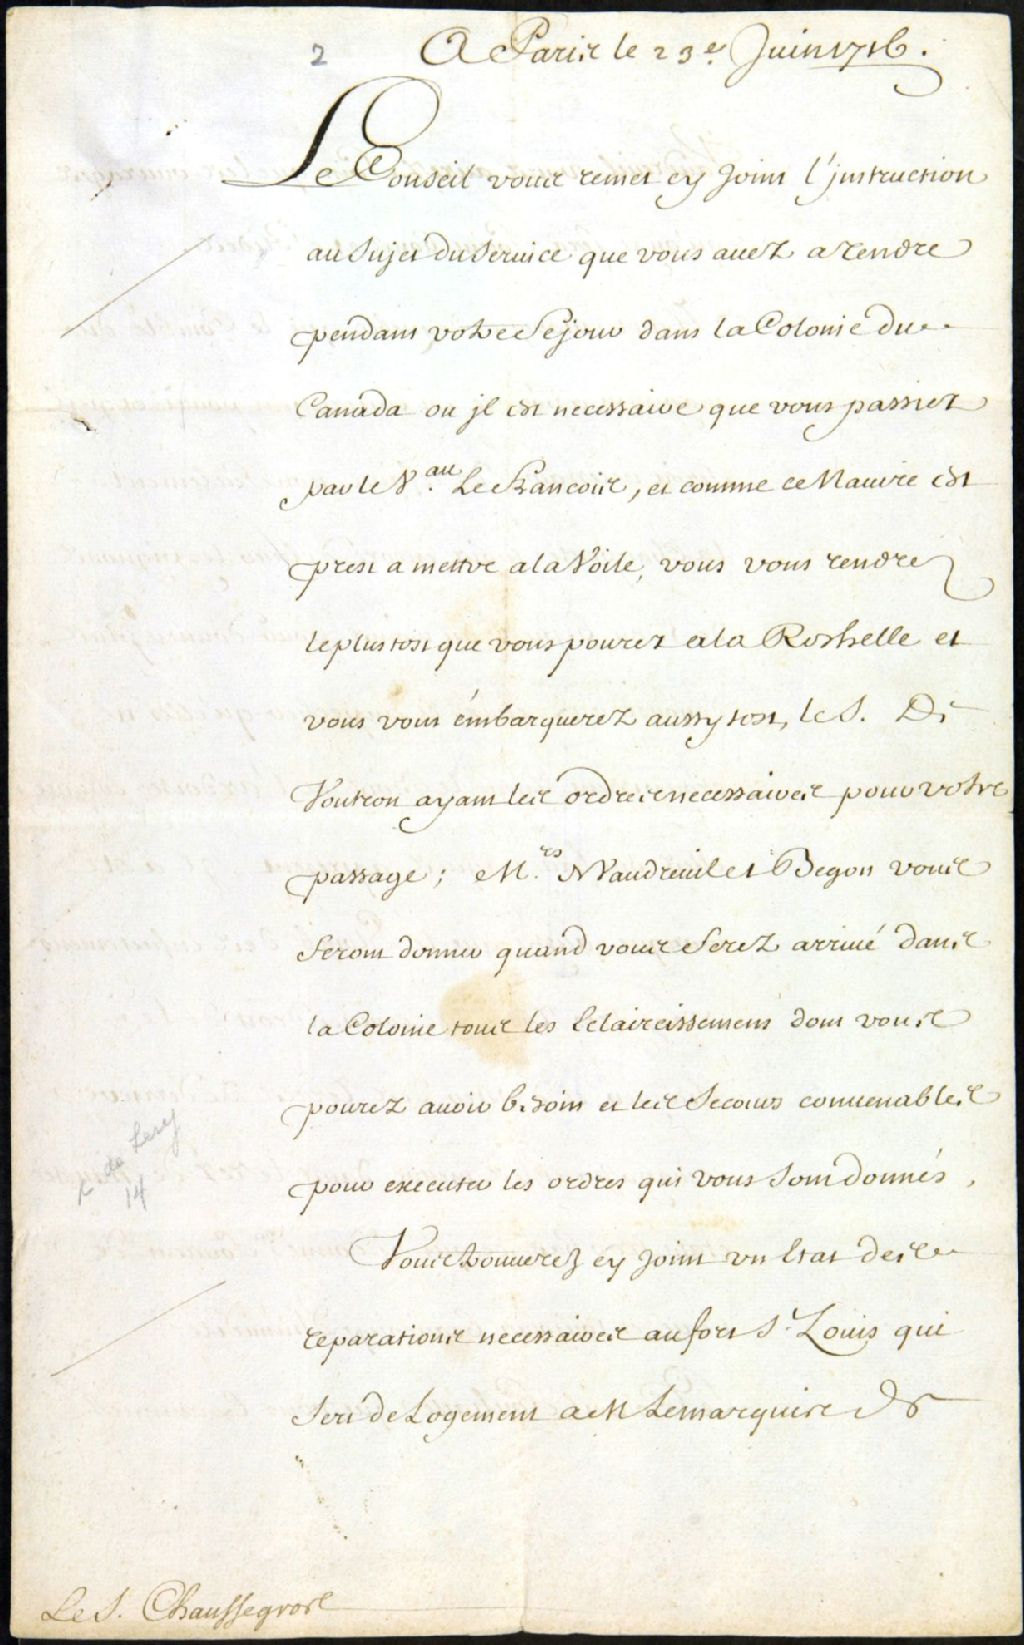 2
A Paris le 23e. Juin 1716.
Le Conseil vous remet cy Joint l'jnstruction
au Sujet du Service que vous avez a rendre
pendant votre Sejour dans la Colonie du
Canada ou jl est necessaire que vous passiez
par le V.au Le François, et comme ce Navire est
prest a mettre a la Voile, vous vous rendrez
le plus tost que vous pourez a la Rochelle et
vous vous émbarquerez aussy tost, le S. De
Voutron ayant les ordres necessaires pour votre
passage; M.rs Vaudreuil et Begon vous
feront donner quand vous Serez arrivé dans
la Colonie tous les Eclaircissemens dont vous
pourez avoir besoin et les Secours convenables
pour executer les ordres qui vous sont donnés.
Vous trouverez cy joint un Etat des
reparations necessaires au fort St. Louis qui
sert de Logement a M Le marquis de
de Lery
14
Le S. Chaussegros